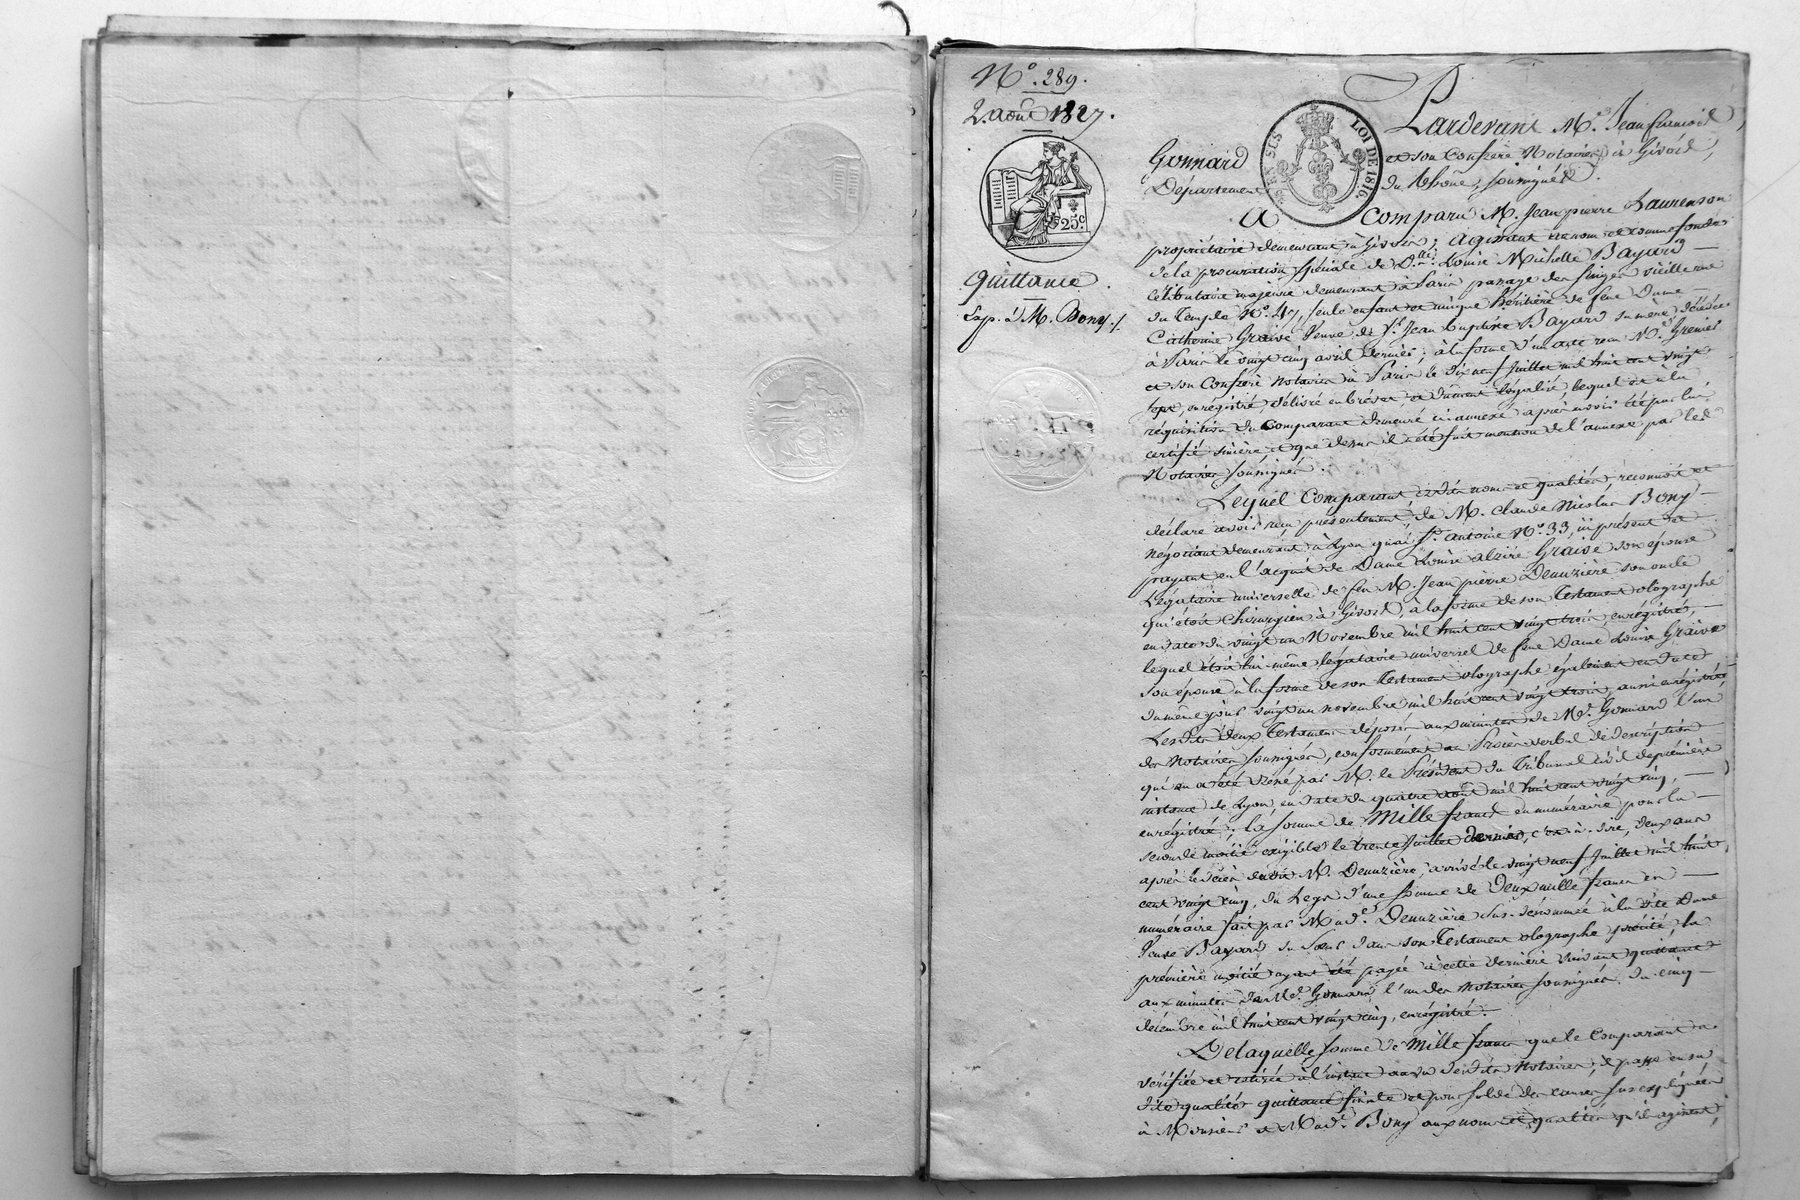 N.° 289.
2. août 1827.
25.c
Quittance
Exp. à M. Bony ./.
LOI DE 1816.
Pardevant M.e Jean françois
Gonnard et son Confrère Notaires à Givors,
Département du Rhône, soussignés.
A Comparu M. Jean pierre Laurenson
propriétaire demeurant à Givors; agissant au nom et comme fondé
de la procuration spéciale de D.lle Louise Michelle Bayard
célibataire majeure demeurant à Paris passage des singes vieille rue
du Temple N.° 47, seule enfant et unique héritière de feue Dame
Catherine Graive Veuve de S.r Jean baptiste Bayard sa mère décédée
à Paris le vingt cinq avril dernier; à la forme d'un acte reçu M.e Grenier
et son Confrère Notaires à Paris le dix neuf juillet mil huit cent vingt
sept, enregistré, délivré en brevet et dûment légalisé lequel est à la
réquisition du Comparant demeuré ci annexé après avoir été par lui
certifié sincère et que dessus il a été fait mention de l'annexe par les d.
Notaires soussignés.
Lequel Comparant, esdits noms et qualités, reconnoit et
déclare avoir reçu présentement de M. Claude Nicolas Bony
négociant demeurant à Lyon quai S.t antoine N.° 33, ici présent et
payant en l'acquit de Dame Louise alzire Graive son épouse
Légataire universelle de feu M. Jean pierre Deuzière son oncle
qui étoit Chirurgien à Givors, à la forme de son Testament olographe
en date du vingt un Novembre mil huit cent vingt trois, enregistré,
lequel étoit lui même légataire universel de feue Dame Louise Graive
son épouse à la forme de son Testament olographe également en date
du même jour vingt un novembre mil huit cent vingt trois, aussi enregistré,
Lesdits deux Testamens déposés aux minutes de M.e Gonnard l'un
des Notaires soussignés, conformément au Procès verbal de description
qui en a été dressé par M. le Président du Tribunal civil de première
instance de Lyon, en date du quatre août mil huit cent vingt cinq,
enregistré; la somme de Mille francs en numéraire pour la
seconde moitié exigible le trente juillet dernier, c'est à dire, deux ans
après le décès dudit M. Deuzière, arrivé le vingt neuf juillet mil huit
cent vingt cinq, du Legs d'une somme de Deux mille francs en
numéraire fait par Mad.e Deuzière sus-dénommée à la dite Dame
Veuve Bayard sa sœur dans son Testament olographe précité, la
première moitié ayant été payée à cette dernière suivant quittance
aux minutes dud. M.e Gonnard l'un des Notaires soussignés du cinq
décembre mil huit cent vingt cinq, enregistré.
De laquelle somme de Mille francs que le Comparant a
vérifiée et retirée à l'instant au vu desdits Notaires, il passe en sa
dite qualité quittance finale et pour solde des causes sus expliquées
à Monsieur et Mad.e Bony aux noms et qualités qu'ils agissent,